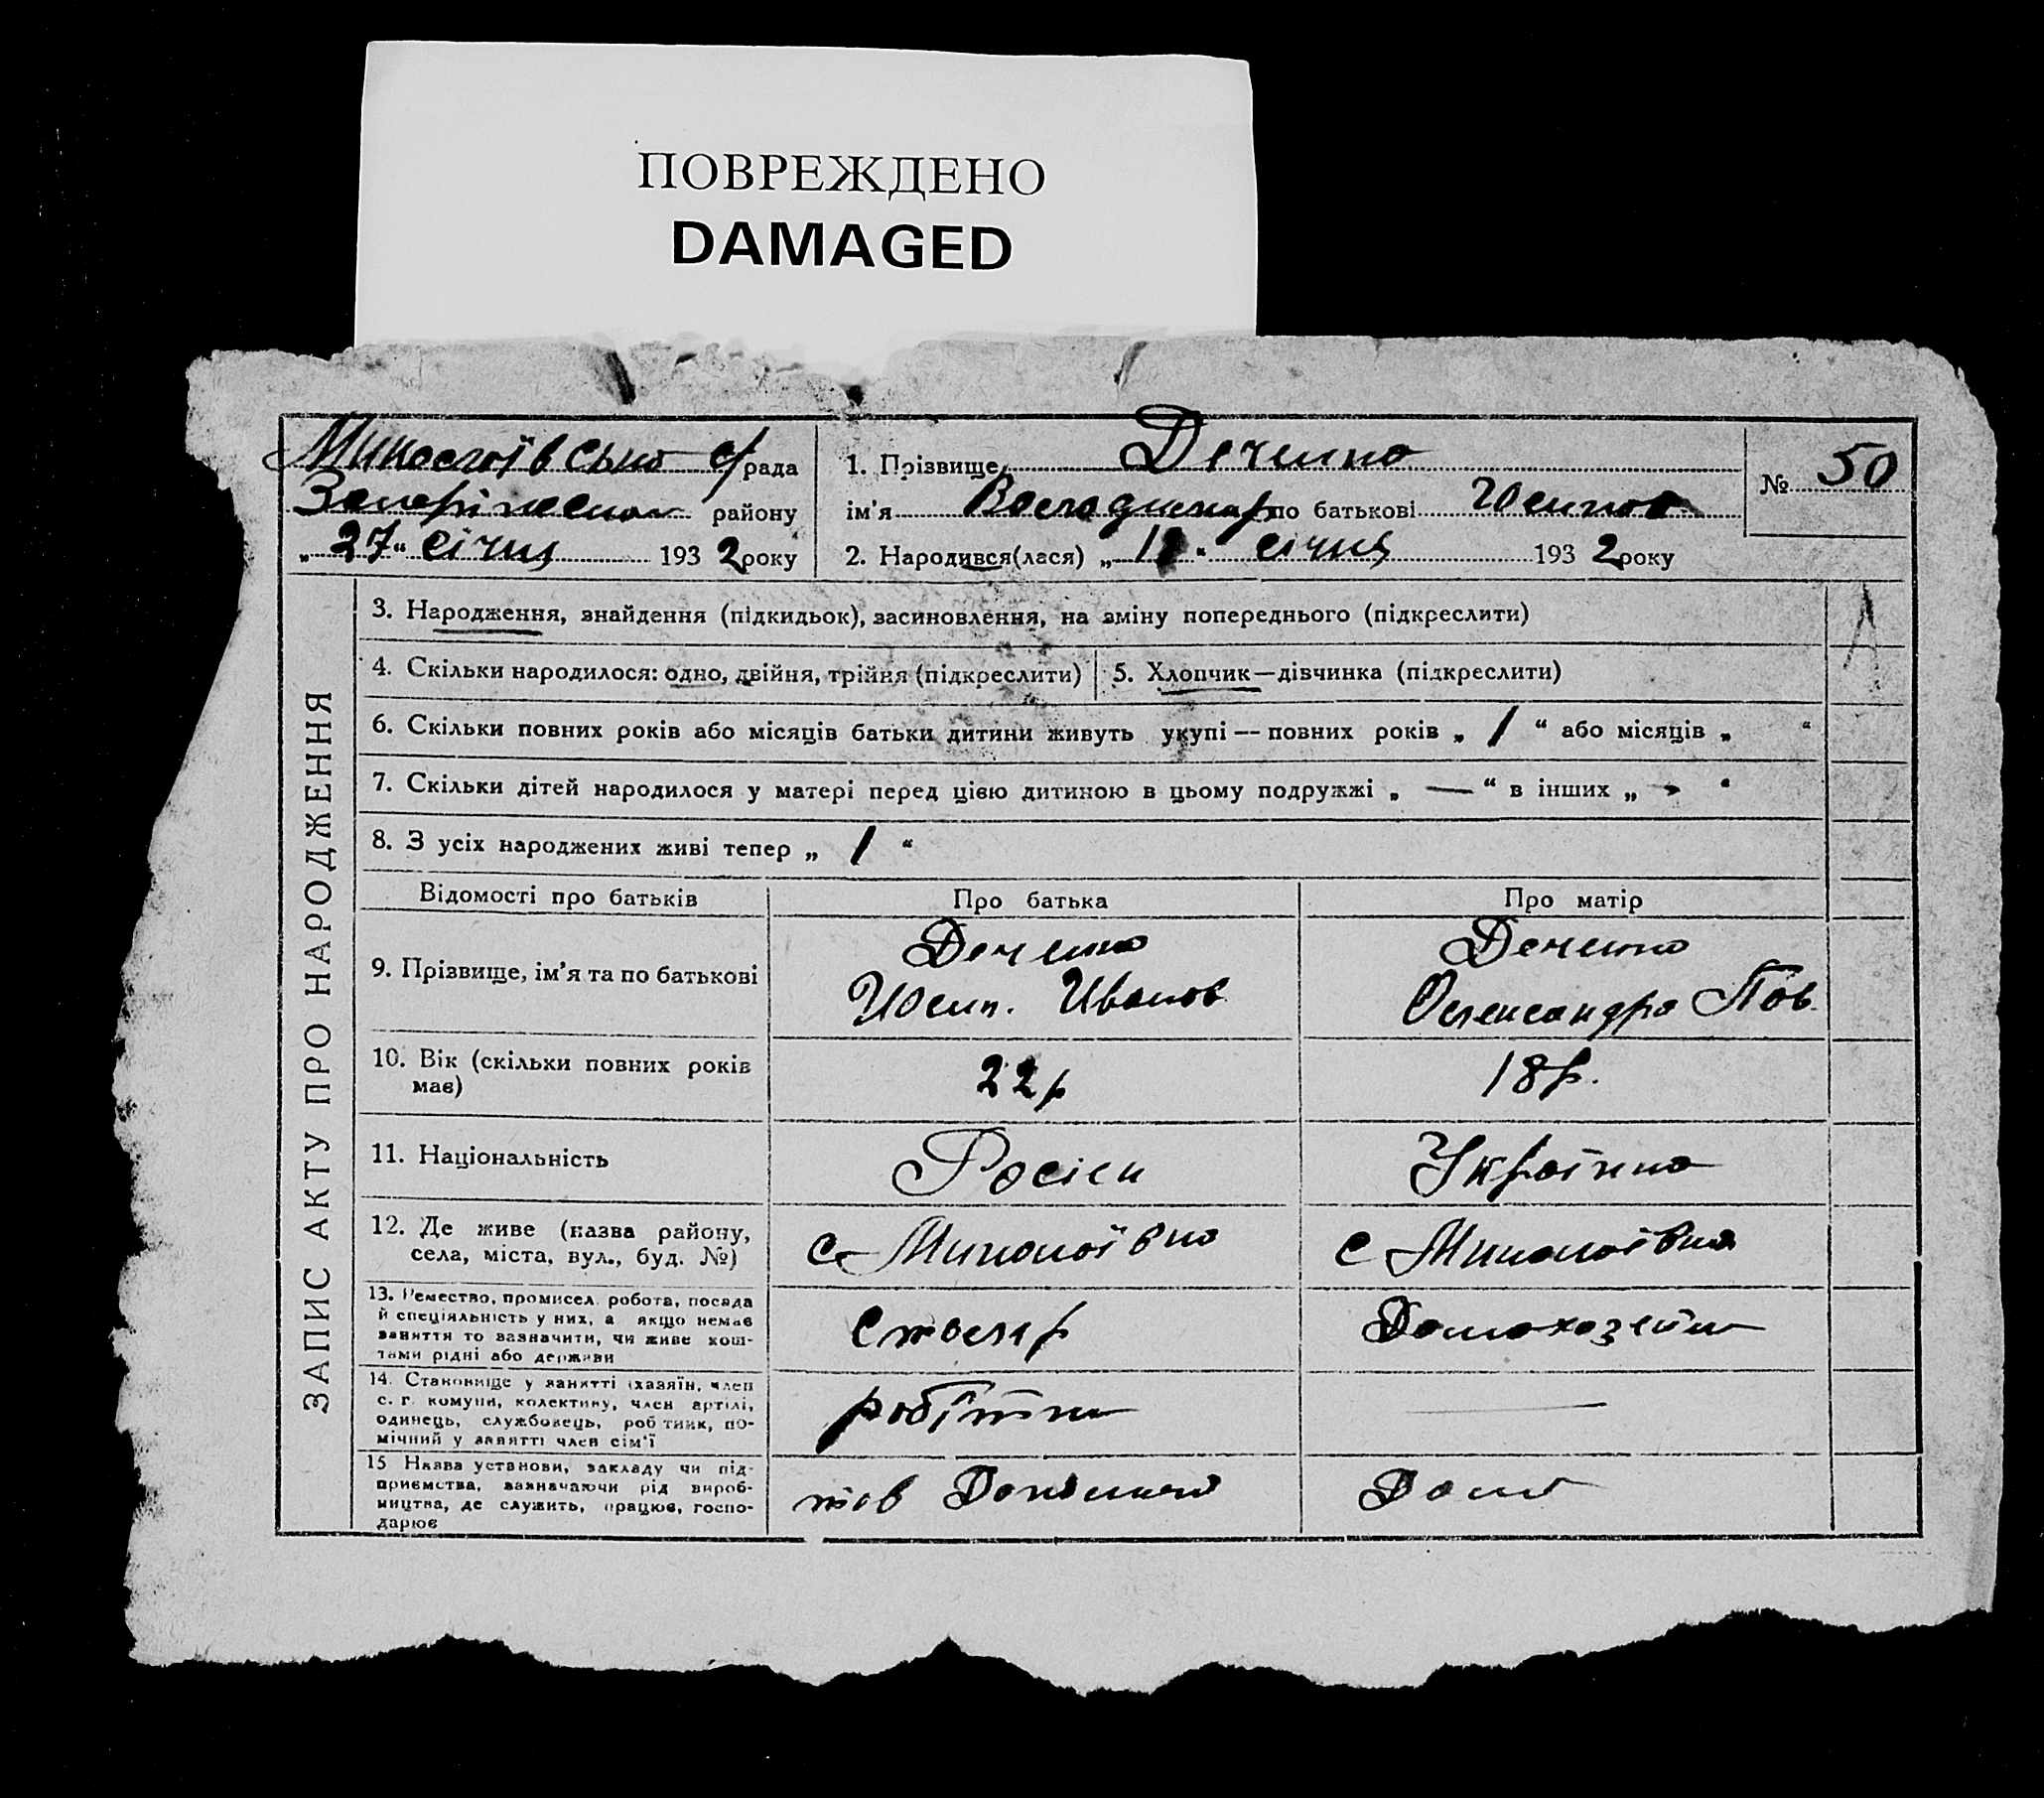 ПОВРЕЖДЕНО
DAMAGED
Миколаївська с/рада
району
„27“ січня 1932 року
1. Прізвище
ім'я Володимир по батькові Йосипов
2. Народився(лася) „ “ січня 1932 року
№ 50
ЗАПИС АКТУ ПРО НАРОДЖЕННЯ
3. Народження, знайдення (підкидьок), засиновлення, на зміну попереднього (підкреслити)
4. Скільки народилося: одно, двійня, трійня (підкреслити)
5. Хлопчик—дівчинка (підкреслити)
6. Скільки повних років або місяців батьки дитини живуть укупі — повних років „ 1 “ або місяців „ “
7. Скільки дітей народилося у матері перед цією дитиною в цьому подружжі „ — “ в інших „ - “
8. З усіх народжених живі тепер „ 1 “
Відомості про батьків
Про батька
Про матір
9. Прізвище, ім'я та по батькові
Йосип. Иванов
Олександра Пав.
10. Вік (скільки повних років
має)
22 р
18 р.
11. Національність
Росіян
Українка
12. Де живе (назва району,
села, міста, вул., буд. №)
с Миколаївка
с Миколаївка
13. Ремество, промисел, робота, посада
й спеціяльність у них, а якщо немає
заняття то зазначити, чи живе кош-
тами рідні або держави
столяр
Домохозяйка
14. Становище у занятті (хазяїн, член
с. г. комуни, колективу, член артілі,
одинець, службовець, робітник, по-
мічний у занятті член сім'ї
робітник
15 Назва установи, закладу чи під-
приємства, зазначаючи рід вироб-
ництва, де служить, працює, госпо-
дарює
Дома